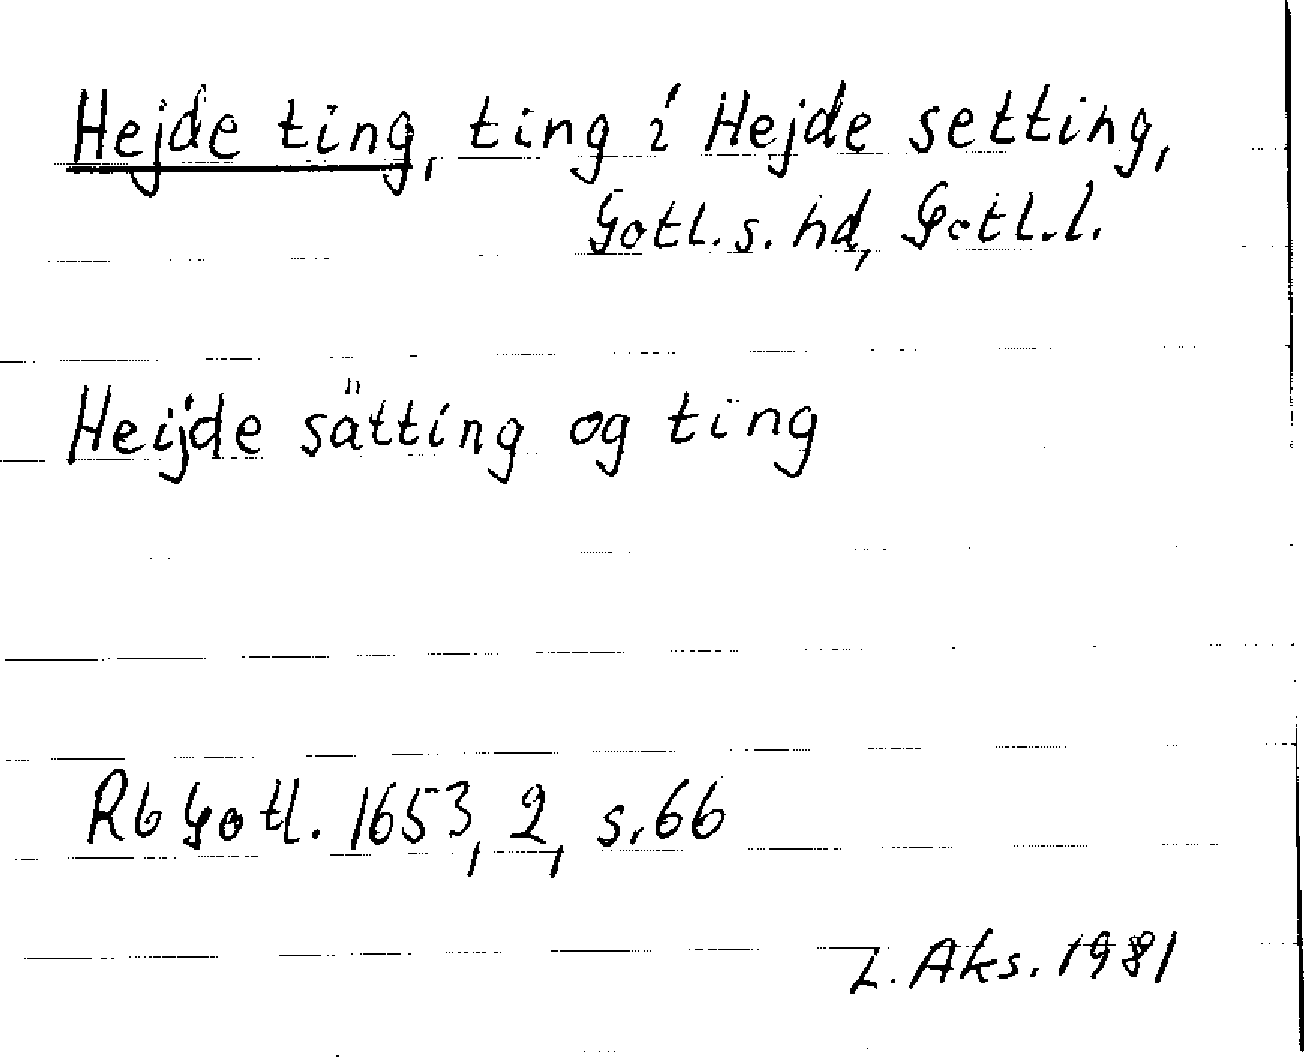 Hejde ting, ting i Hejde setting,
Gotl. s. hd, Gotl. l.
Heijde sätting og ting
Rb Gotl. 1653, 2, s. 66
L. Aks. 1981